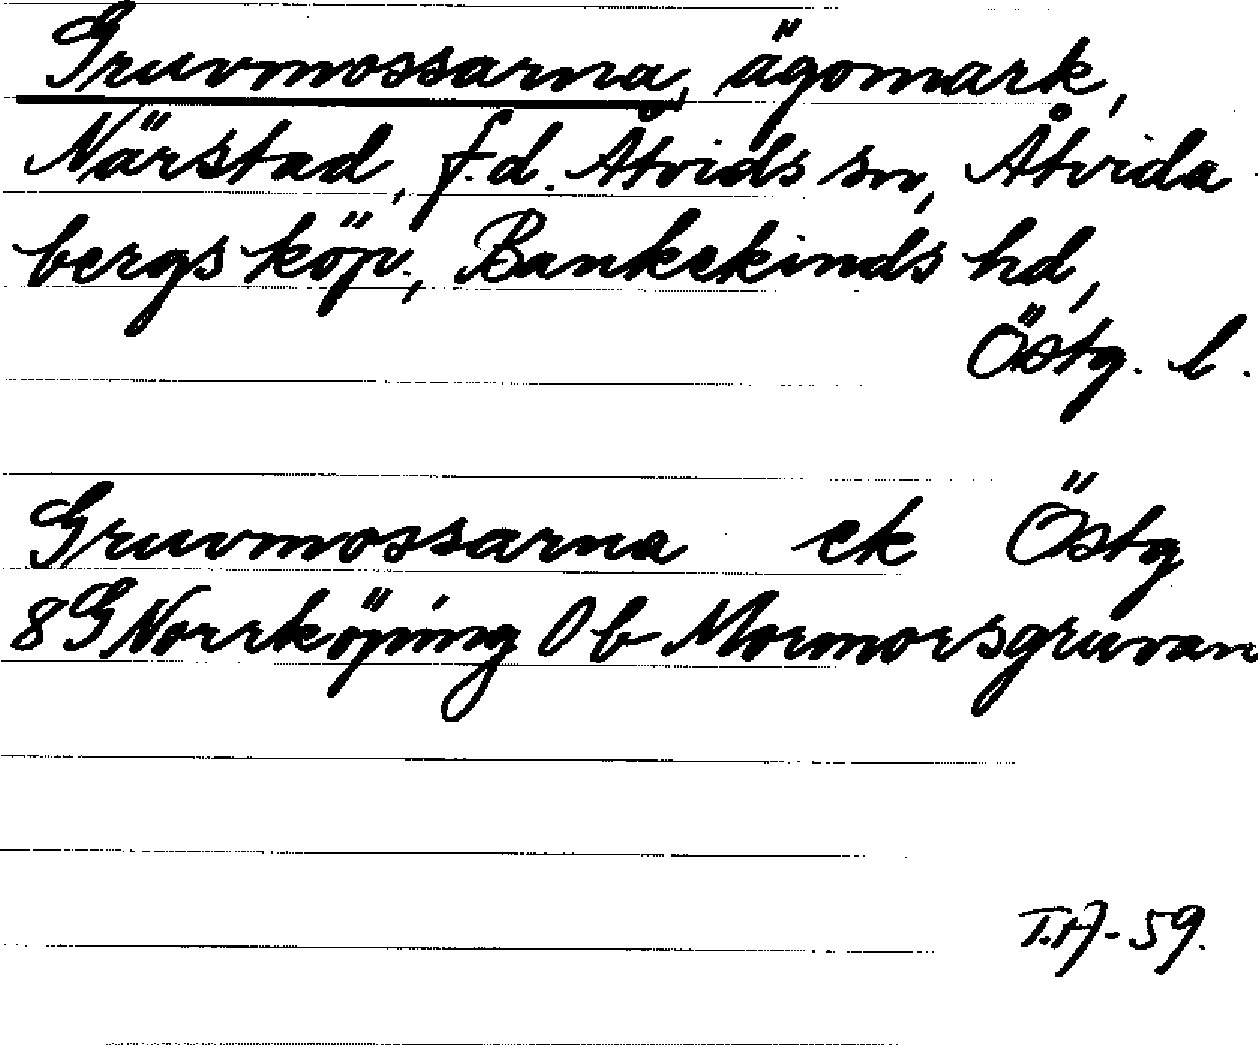 Gruvmossarna, ägomark,
Närstad, f.d. Åtvids sn, Åtvida
bergs köp., Bankekinds hd,
Östg. l.
Gruvmossarna ek Östg
8G Norrköping 0b Mormorsgruvan
T.A-59.